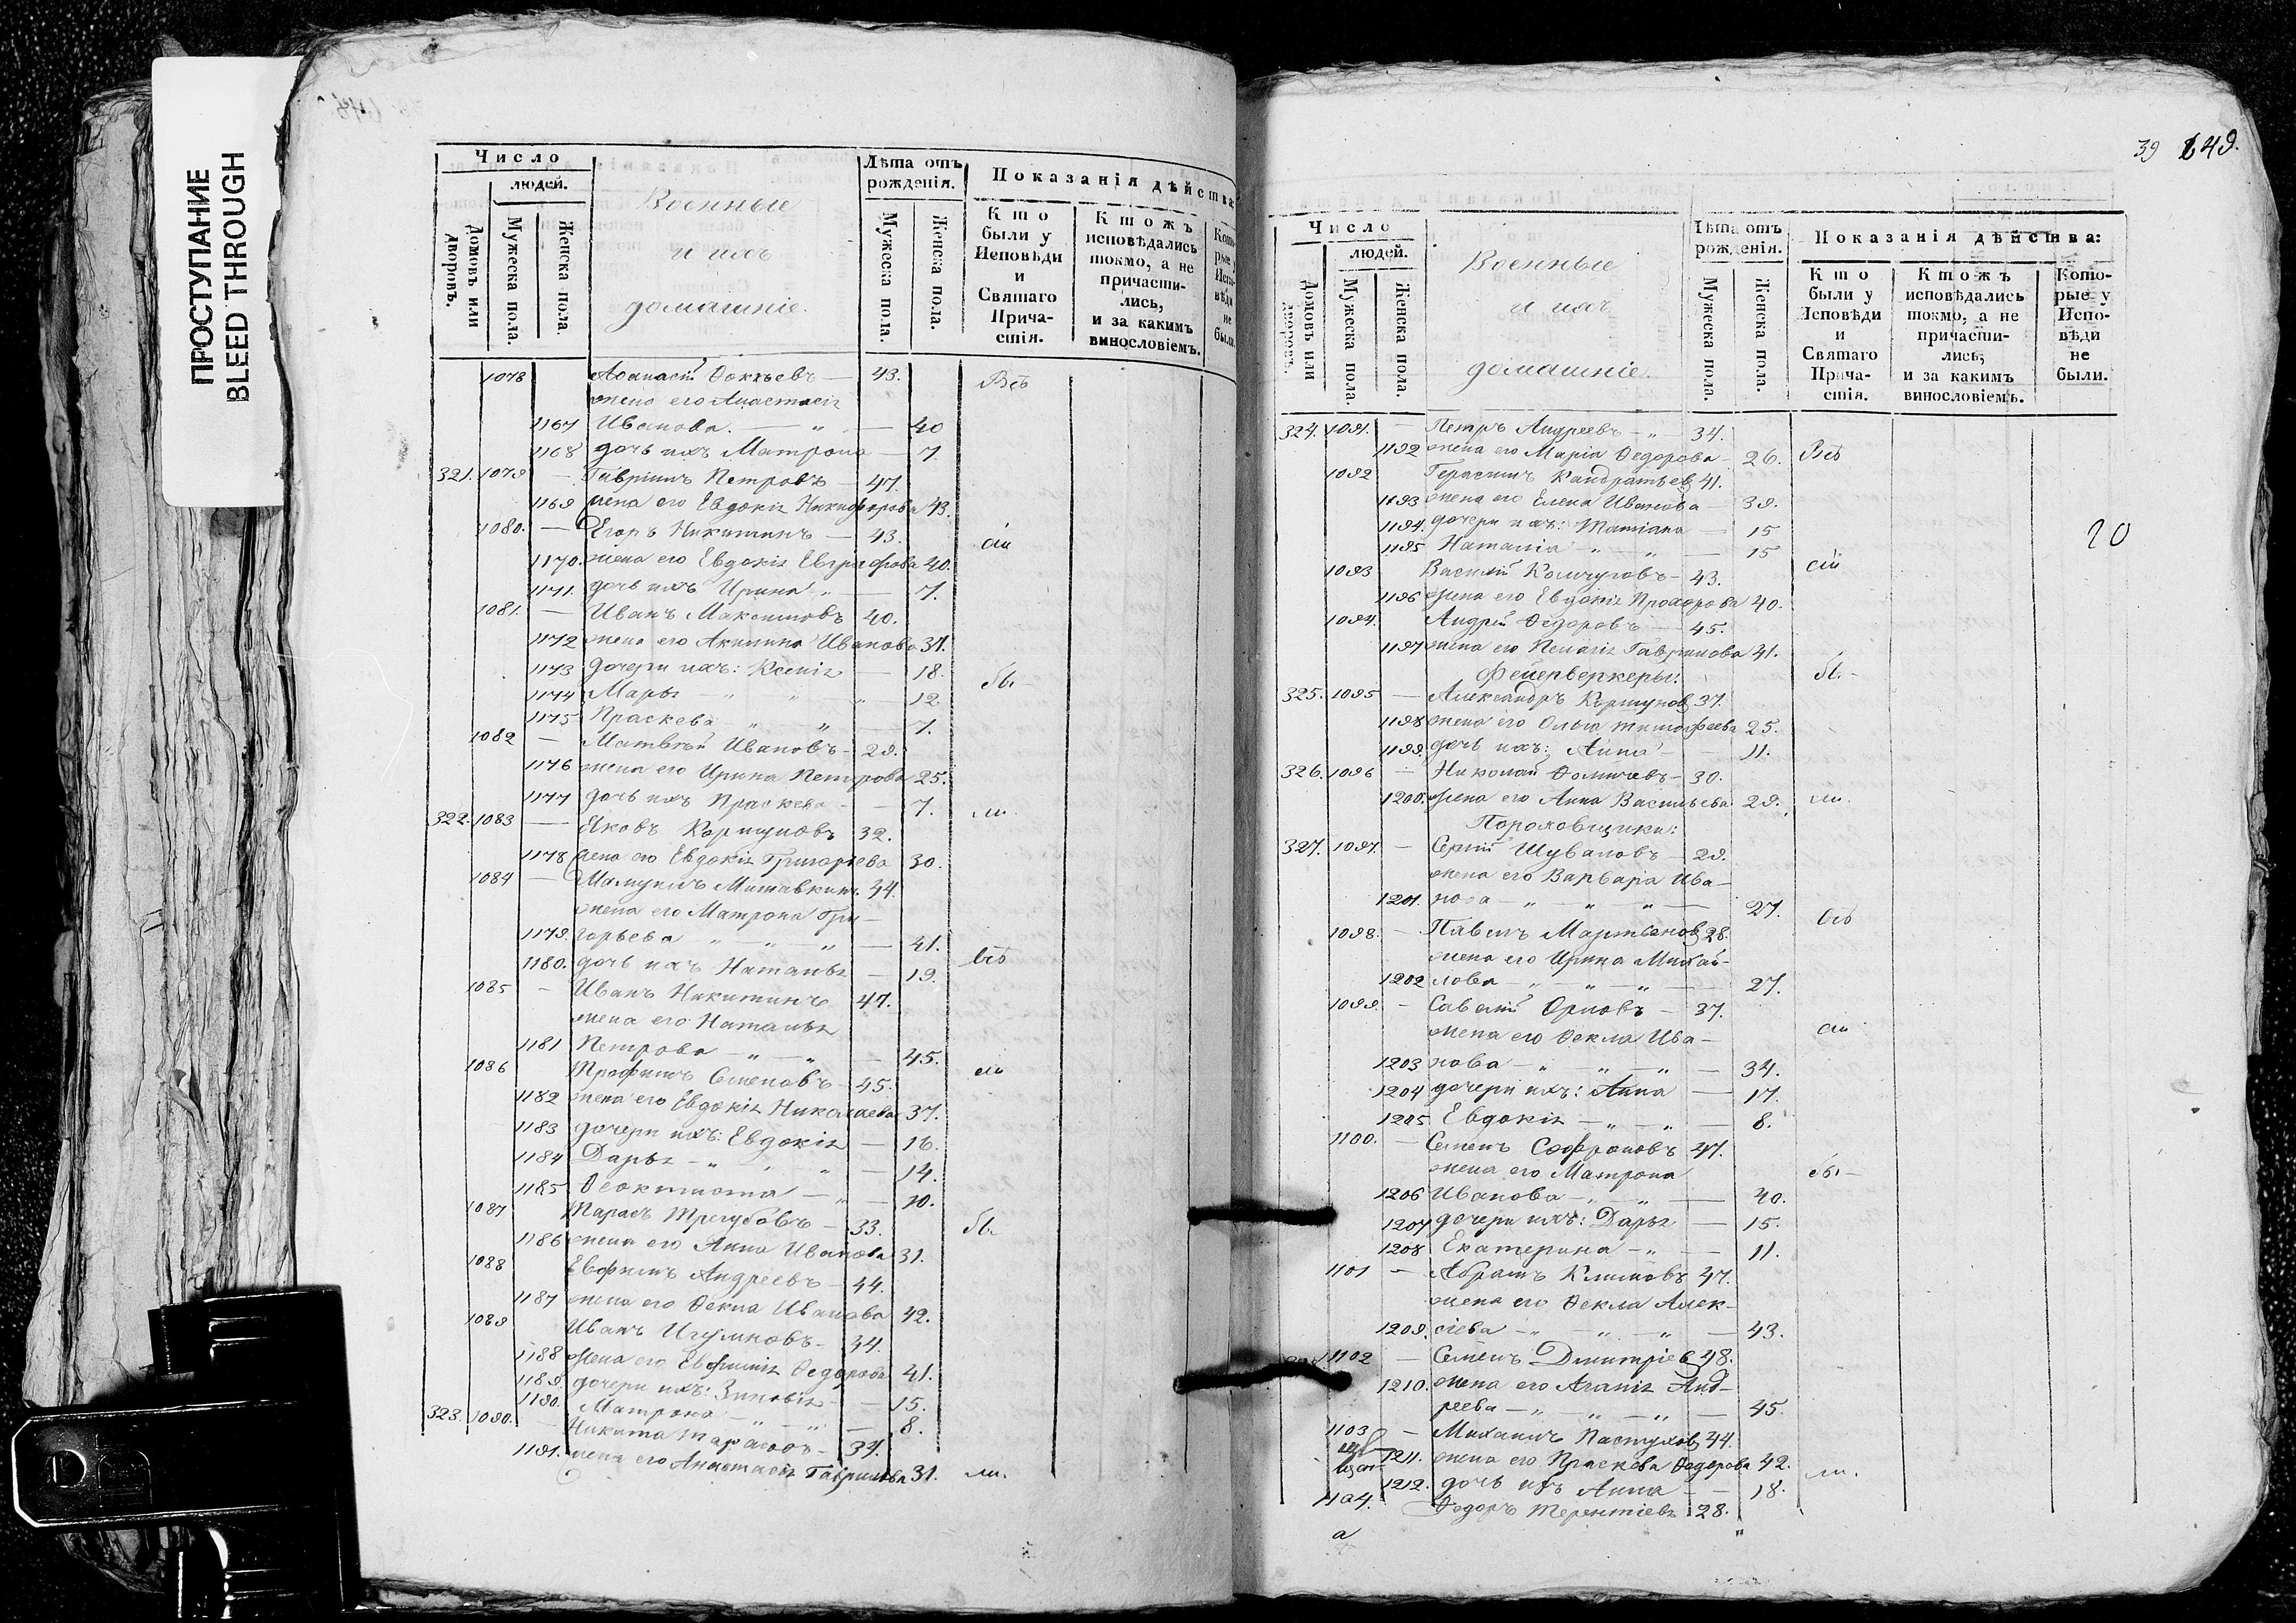 ПРОСТУПАНИЕ
BLEED THROUGH
Число
людей.
Домовъ или дворовъ.
Мужеска пола.
Женска пола.
Военные
и ихъ
домашніе.
Лѣта отъ рожденія.
Мужеска пола.
Женска пола.
Показанія дѣйства:
Кто были у Исповѣди и Святаго Причастія.
Ктожъ исповѣдались токмо, а не причастились, и за какимъ винословіемъ.
Которые у Исповѣди не были.
1078 43. Всѣ
жена его Анастасія
1167 Иванова — „ — 40
1168 дочь ихъ Матрона — 7
321. 1079 — Гавріилъ Петровъ — 47.
1169 жена его Евдокія Никифорова 43.
1080. — Егоръ Никитинъ — 43. сіи
1170. жена его Евдокія Евграфова 40.
1171. дочь ихъ Ирина „ — 7.
1081. — Иванъ Максимовъ 40.
1172 жена его Акилина Иванова 31.
1173 дочери ихъ: Ксенія — 18. бы-
1174 Марья — „ „ — 12
1175 Праскева — „ — „ 7.
1082 — Матвѣй Ивановъ — 29.
1176 жена его Ирина Петрова 25.
1177 дочь ихъ Праскева — 7. ли.
322. 1083 — Яковъ Коршуновъ 32.
1178 жена его Евдокія Григорьева 30.
1084 — 44.
жена его Матрона Гри-
1179. горьева „ „ „ — 41.
1180. дочь ихъ Наталья — 19. всѣ
1085 — Иванъ Никитинъ 47.
жена его Наталья
1181 Петрова — „ — „ — 45.
1086 Трофимъ Семеновъ 45. сіи
1182 жена его Евдокія Николаева 37.
1183 дочери ихъ: Евдокія — 16.
1184 Дарья — „ „ „ — 14.
1185 Ѳеоктиста — „ — 10.
1087 Тарасъ Трегубовъ — 33. бы
1186 жена его Анна Иванова 31.
1088 Евфимъ Андреевъ — 44.
1187 жена его Ѳекла Иванова 42.
1089 Иванъ Игумновъ — 34.
1188 жена его Евфимія Ѳедорова 41.
1189. дочери ихъ: Зиновія — 15.
1190. Матрона — „ — „ — 8.
323. 1090. — Никита Тарасовъ — 34.
1191. жена его Анастасія Гаврилова 31. ли.
39 649.
Число
людей.
Домовъ или дворовъ.
Мужеска пола.
Женска пола.
Военные
и ихъ
домашніе.
Лѣта отъ рожденія.
Мужеска пола.
Женска пола.
Показанія дѣйства:
Кто были у Исповѣди и Святаго Причастія.
Ктожъ исповѣдались токмо, а не причастились, и за какимъ винословіемъ.
Которые у Исповѣди не были.
324. 1091. — Петръ Андреевъ — „ — 34.
1192 жена его Марія Ѳедорова — 26. Всѣ
1092 Герасимъ Кандратьев 41.
1193 жена его Елена Иванова — 39.
1194. дочери ихъ: Татіана — 15
20
1195 Наталіа „ — „ — 15
1093 Василій Кольчуговъ — 43. сіи
1196 жена его Евдокія Прохорова 40.
1094. Андрей Ѳедоровъ — 45.
1197 жена его Пелагія Гаврилова 41.
Фейерверкеры: бы-
325. 1095 — Александръ Коршунов 37.
1198 жена его Ольга Тимофеева 25.
1199. дочь ихъ: Анна — 11.
326. 1096 — Николай Ѳомичевъ — 30.
1200. жена его Анна Васильева 29. ли.
Пороховщики:
327. 1097. — Сергій Шуваловъ — 29.
жена его Варвара Ива-
1201. нова — „ „ „ — 27. всѣ
1098. — Павелъ Мартьянов 28.
жена его Ирина Михай-
1202 лова — „ — „ — „ — 27.
1099. — Савелій Орловъ — 37.
жена его Ѳекла Ива- сіи
1203 нова — „ — „ — „ — 34.
1204 дочери ихъ: Анна — 17.
1205 Евдокія — „ — „ — 8.
1100. — Семенъ Софроновъ 47.
жена его Матрона бы-
1206 Иванова — „ „ — 40.
1207 дочери ихъ: Дарья — 15.
1208 Екатерина — „ — 11.
1101 — Абрамъ Климовъ 47.
жена его Ѳекла Алек-
1209. сіева — „ — „ — „ — 43.
1102 — Семенъ Дмитріев 48.
1210. жена его Агапія Анд-
реева — „ — „ — „ — 45.
1103 — Михаилъ Пастухов 44.
1211. жена его Праскева Ѳедорова 42.
1212. дочь ихъ Анна — 18. ли.
1104. Ѳедоръ Терентіевъ 28.
а